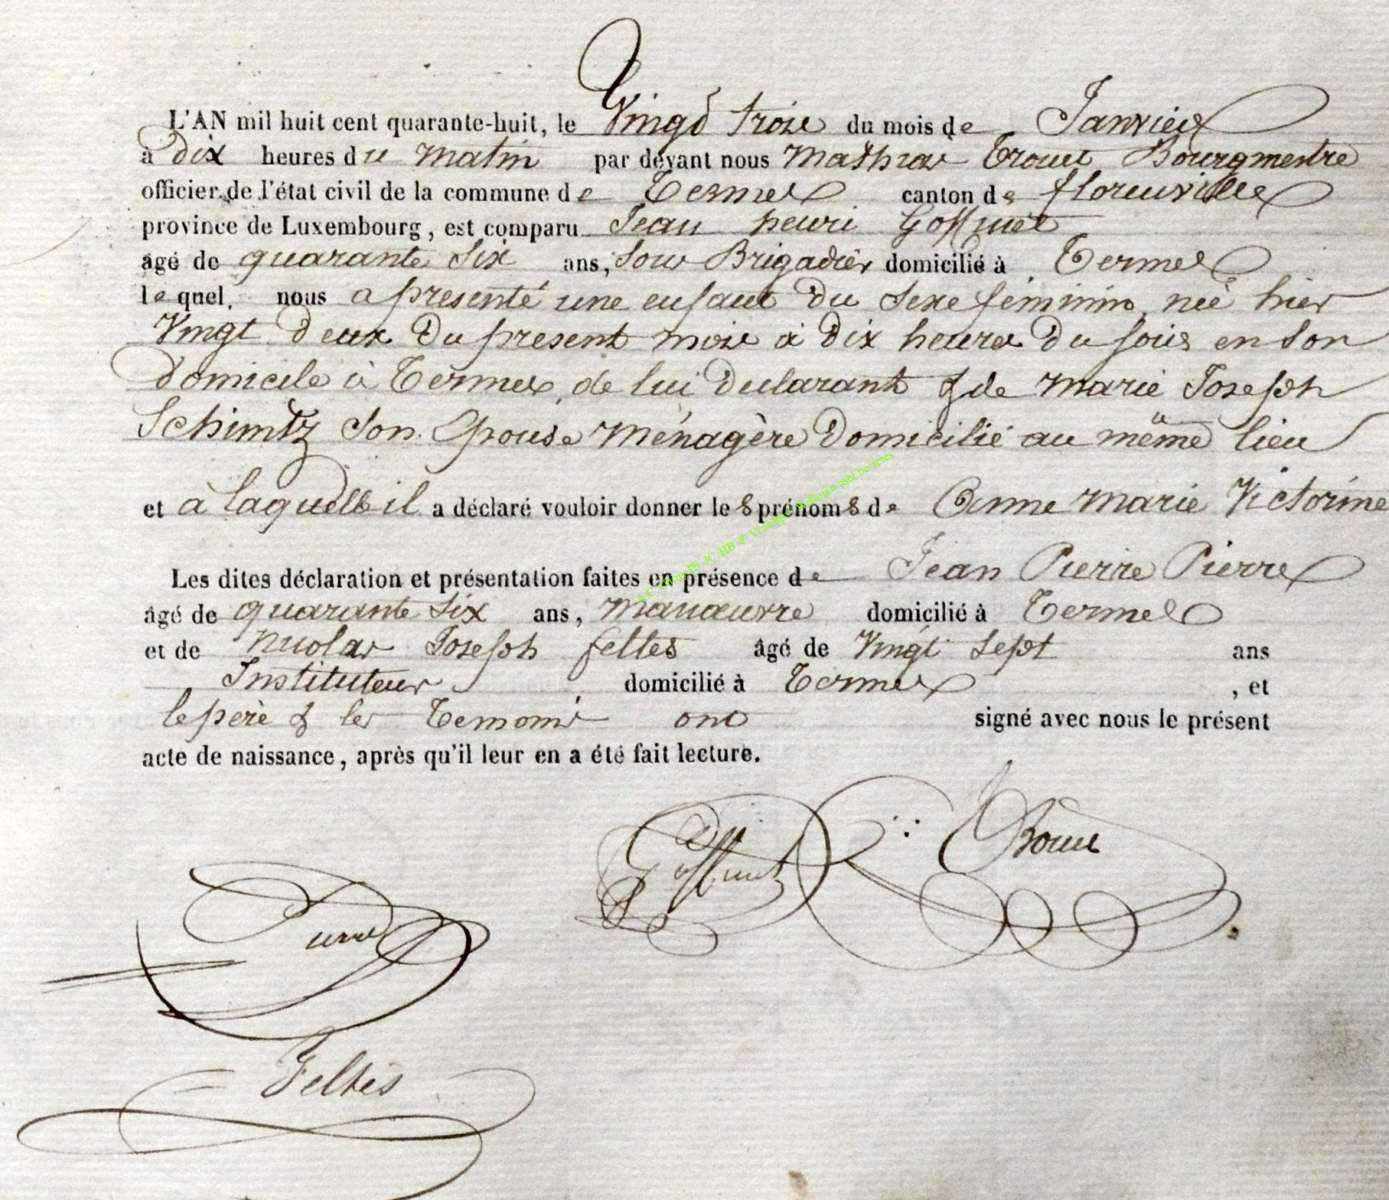 L'AN mil huit cent quarante-huit, le Vingt trois du mois de Janvier
à Dix heures du matin par devant nous Mathias Trouet Bourgmestre
officier de l'état civil de la commune de Termes canton de florenville
province de Luxembourg, est comparu Jean henri Goffinet
âgé de quarante six ans, Sous Brigadier domicilié à Termes
lequel nous a presenté une enfant du Sexe féminin, née hier
Vingt deux du present mois à dix heures du soir en son
domicile à Termes, de lui declarant & de marie Joseph
Schimtz Son Epouse Ménagère domicilié au même lieu
et à laquelle il a déclaré vouloir donner les prénoms de Anne Marie Victorine
Les dites déclaration et présentation faites en présence de Jean Pierre Pierre
âgé de quarante six ans, manœuvre domicilié à Termes
et de Nicolas Joseph feltes âgé de Vingt Sept ans
Instituteur domicilié à Termes, et
le père & les Temoins ont signé avec nous le présent
acte de naissance, après qu'il leur en a été fait lecture.
Goffinet Trouet
Pierre
Feltes